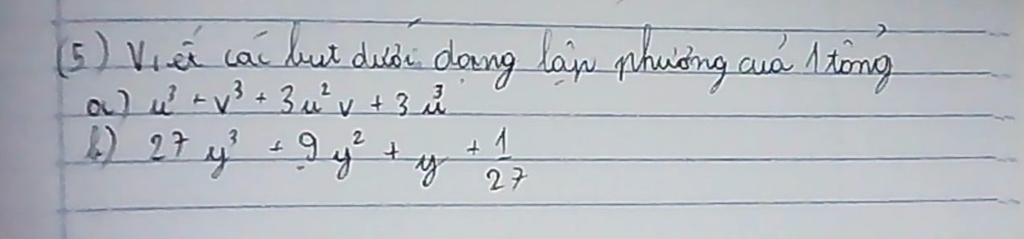 (5) Viết các bt dưới dạng lập phương của 1 tổng
a) u³ + v³ + 3u²v + 3u³
b) 27y³ + 9y² + y + 1/27